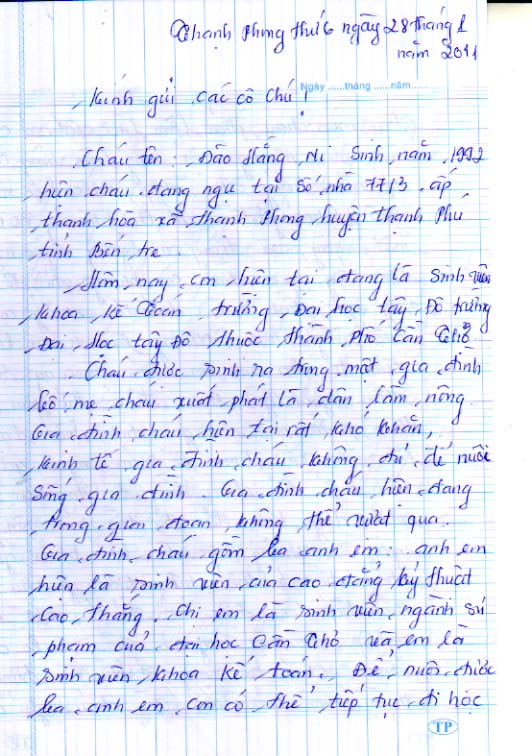 Thạnh Phong thứ 6 ngày 28 tháng 1
năm 2011
Ngày ......tháng ......năm ......
Kính gửi các cô chú!
Cháu tên: Đào Hằng Ni Sinh năm 1992
hiện cháu đang ngụ tại số nhà 77/3 ấp
thạnh hòa xã thạnh Phong huyện thạnh Phú
tỉnh Bến tre.
Hôm nay, em hiện tại đang là Sinh viên
khoa kế toán trường Đại học tây Đô trường
Đại Học tây Đô thuộc thành phố Cần thơ
Cháu được sinh ra trong một gia đình
bố mẹ cháu xuất phát là dân làm nông.
Gia đình cháu hiện tại rất khó khăn,
kinh tế gia đình cháu không đủ để nuôi
sống gia đình. Gia đình cháu hiện đang
trong giai đoạn không thể vượt qua.
Gia đình cháu gồm ba anh em: anh em
hiện là sinh viên của cao đẳng kỹ thuật
Cao thắng. Chị em là sinh viên ngành sư
phạm của đại học Cần thơ và em là
sinh viên khoa kế toán. Để nuôi được
ba anh em con có thể tiếp tục đi học
TP